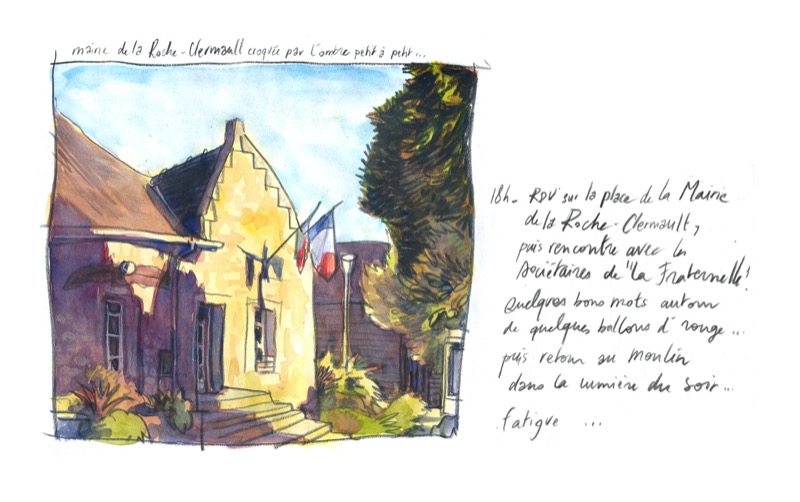 mairie de la Roche-Clermault croquée par l'ombre petit à petit...
18h. RDV sur la place de la Mairie
de la Roche-Clermault,
puis rencontre avec les
Sociétaires de "la Fraternelle"
Quelques bons mots autour
de quelques ballons d'rouge...
puis retour au moulin
dans la lumière du soir...
fatigue ...